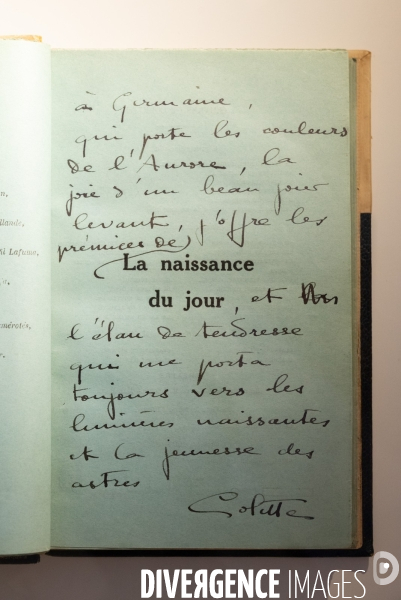 à Germaine,
qui porte les couleurs
de l'Aurore, la
joie d'un beau jour
levant, j'offre les
prémices de
La naissance
du jour, et
l'élan de tendresse
qui me porta
toujours vers les
lumières naissantes
et la jeunesse des
astres
Colette
llande,
al Lafuma,
mérotés,
DIVERGENCE IMAGES